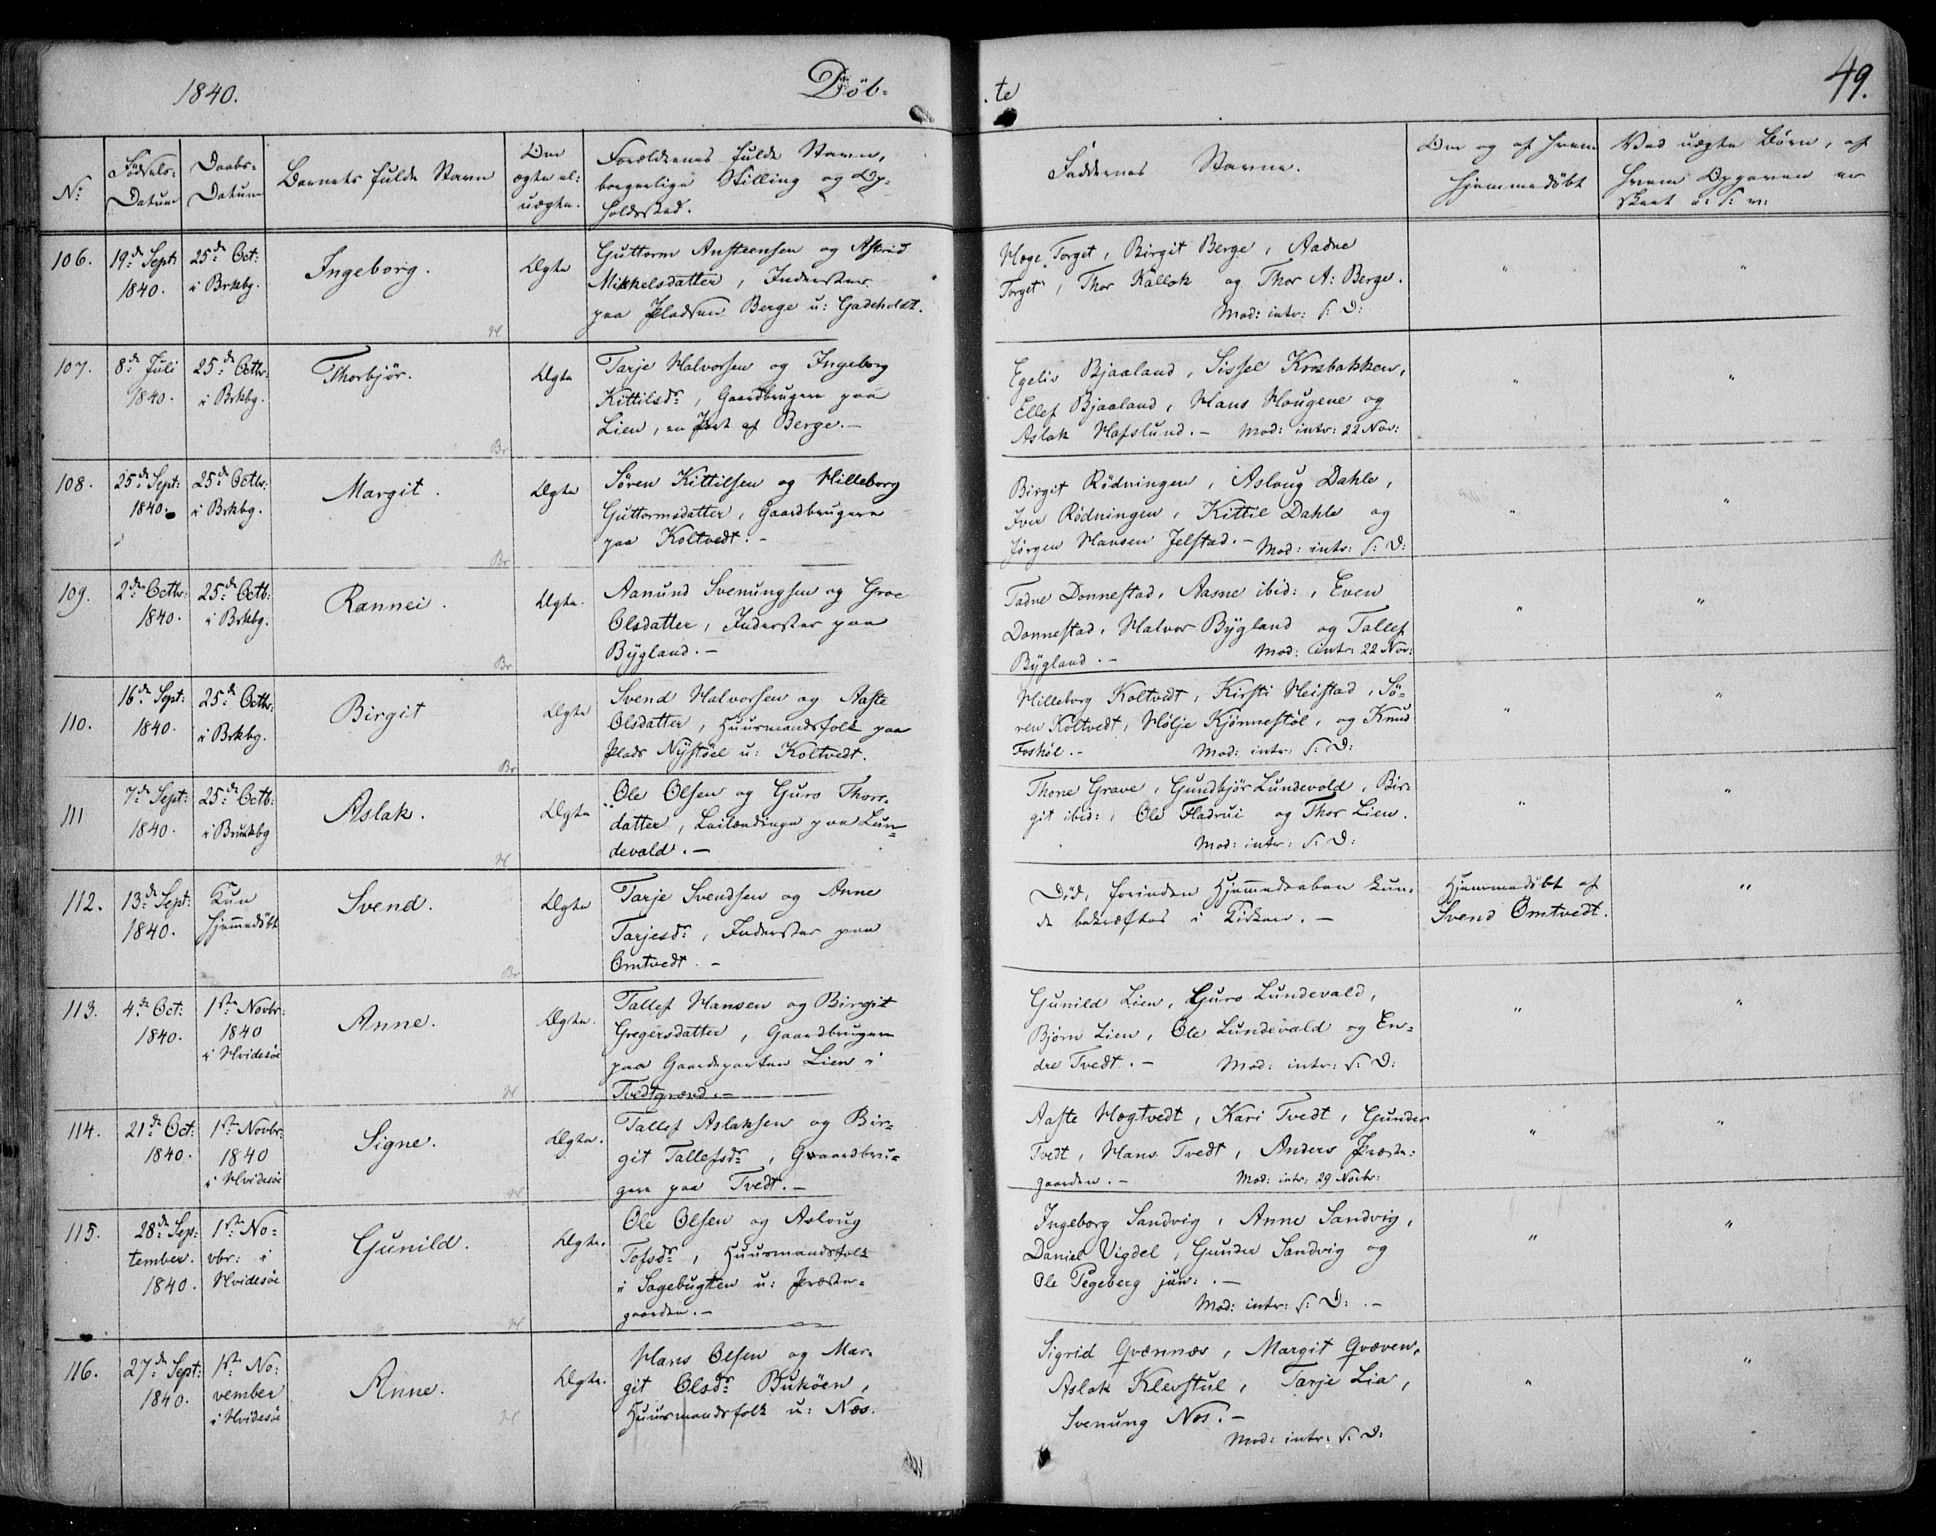 1840.
Døb-
te
49.
No:
Fødsels-
Datum
Daabs-
Datum
Barnets fulde Navn
Om
ægte el:
uægte.
Forældrenes fulde Navn,
borgerlige Stilling og Op-
holdssted.
Faddernes Navne.
Om og af hvem
hjemmedøbt
Ved uægte Børn, af
hvem Opgaven er
skeet o: s: v:
106.
19de Sept:
1840.
25de Oct:
i Brkbg.
Ingeborg.
H
Ægte
Guttorm Ansteensen og Astrid
Mikkelsdatter, Inderster
paa Pladsen Berge u: Gadeholdt.
Hæge Torget, Birgit Berge, Aadne
Torget, Thor Kaallok og Thor A: Berge.
Mod: intr: s: D:
"
"
107.
8de Juli
1840.
25de Octbr:
i Brkbg.
Thorbjør.
Br
Ægte
Tarje Halvorsen og Ingeborg
Kittilsdr, Gaardbrugere paa
Lien, en Part af Berge.-
Egeliv Bjaaland, Sissel Krosbakken,
Ellef Bjaaland, Hans Hougene og
Aslak Hafslund.- Mod: intr: 22 Nov:
"
"
108.
25de Sept:
1840.
25de Octbr:
i Brkbg.
Margit.
Br
Ægte
Søren Kittilsen og Hilleborg
Guttormsdatter, Gaardbrugere
paa Koltvedt.-
Birgit Rødningen, Aslaug Dahle,
Iver Rødningen, Kittil Dahle og
Jørgen Hansen Jelstad.- Mod: intr: s: D:
"
"
109.
2den Octbr:
1840.
25de Octb:
i Brkbg.
Rannei.
Br
Ægte.
Aanund Svenungsen og Groe
Olsdatter, Inderster paa
Bÿgland.-
Tadne Donnestad, Aasne ibid:, Even
Donnestad, Halvor Bÿgland og Tallef
Bÿgland.- Mod: intr: 22 Nov:
"
"
110.
16de Sept:
1840.
25de Octbr:
i Brkbg.
Birgit
Br
Ægte
Svend Halvorsen og Aaste
Olsdatter, Huusmandsfolk paa
Plads Nÿstøel u: Koltvedt.
Hilleborg Koltvedt, Kirsti Heistad, Sø-
ren Koltvedt, Hølje Kjønnestøl, og Knud
Foshøl.- Mod: intr: s: D:
"
"
111
7de Sept:
1840.
25de Octb:
i Brukbg
Aslak.
H
Ægte
Ole Olsen og Guro Thors-
datter, Leilændinge paa Lun-
devald.-
Thone Grave, Gundbjør Lundevold, Bir-
git ibid:, Ole Fladrui og Thor Lien.
Mod: intr: s: D:
"
"
112.
13de Sept:
1840.
Kun
hjemmedøbt
Svend.
Br
Ægte
Tarje Svendsen og Anne
Tarjesdr, Inderster paa
Omtvedt.-
Død, forinden Hjemmedaaben kun-
de bekræftes i Kirken.-
Hjemmedøbt af
Svend Omtvedt.
"
113.
4de Oct:
1840.
1ste Novbr:
1840
i Hvidesøe
Anne.
H
Ægte.
Tallef Hansen og Birgit
Gregersdatter, Gaardbrugere
paa Gaardeparten Lien i
Tvedtgrænd.-
Gunild Lien, Guro Lundevald,
Bjørn Lien, Ole Lundevald og En-
dre Tvedt.- Mod: intr: s: D:
"
"
114.
21de Oct:
1840.
1ste Novbr:
1840
i Hvidesøe
Signe.
H
Ægte.
Tallef Aslaksen og Bir-
git Tallefsdr, Gaardbru-
gere paa Tvedt.-
Aaste Hægtvedt, Kari Tvedt, Gunder
Tvedt, Hans Tvedt, Anders Præste-
gaarden.- Mod: intr: 29 Novbr:
"
"
115.
28de Sep:
tember.
1840.
1ste No-
vbr: i
Hvidesøe
Gunild.
H
Ægte.
Ole Olsen og Aslaug
Tofsdr, Huusmandsfolk
i Sagebugten u: Præste-
gaarden.-
Ingeborg Sandvig, Anne Sandvig,
Daniel Vigdel, Gunder Sandvig og
Ole Tegeberg jun:.-
Mod: intr: s: D:.-
"
"
116.
27de Sept:
1840.
1ste No:
vember
i Hvidesøe
Anne.
H
Ægte.
Hans Olsen og Mar-
git Olsdr Bukøen,
Huusmandsfolk u: Næs.
Sigrid Qvænnæs, Margit Qvæven,
Aslak Klevstul, Tarje Lia,
Svenung Næs.-
Mod: intr: s: D:
"
"